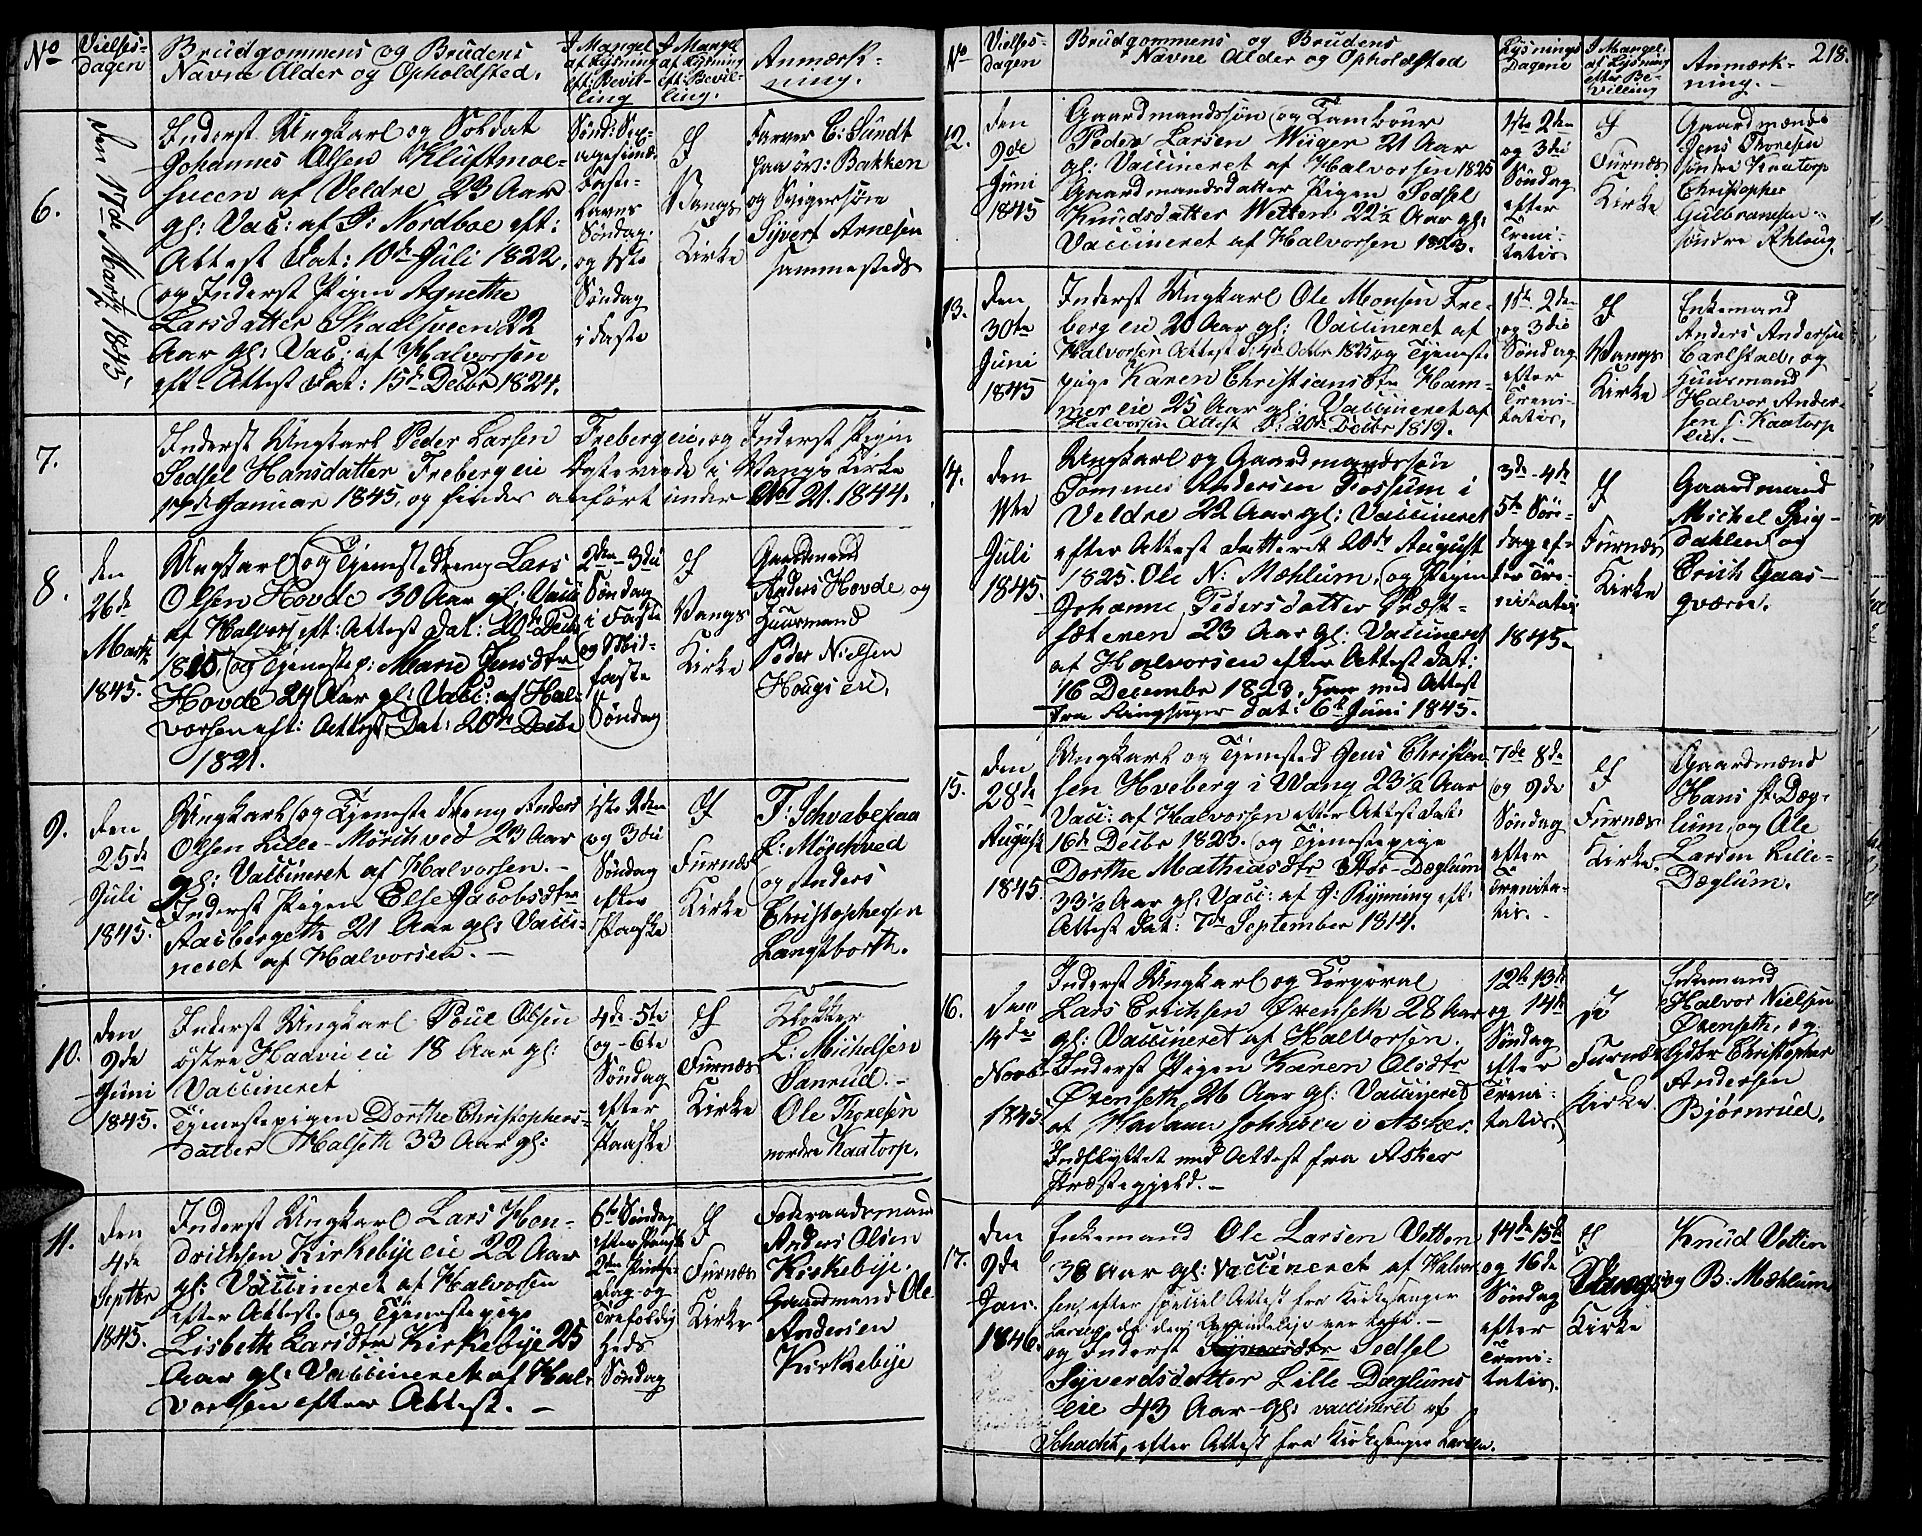 No
Vielses-
dagen
Brudgommens og Brudens
Navne Alder og Opholdsted.
I Mangel
af Lysning
eft: Bevil-
ling
I Mangel
af Lysning
eft: Bevil-
ling.
Anmærk-
ning.
6.
Den 17de Martz 1845.
Inderst Ungkarl og Soldat
Johannes Olsen Kluftmoe-
sveen af Veldre 23 Aar
gl: Vac: af P: Nordboe eft:
Attest Dat: 10de Juli 1822,
og Inderst Pigen Agnethe
Larsdatter Skaelsveen 22
Aar gl: Vac: af Halvorsen
eft- Attest Dat: 15de Decbr 1824.
Sønd: Sep-
agesimæ
Faste-
lavns
Søndag
og 1ste
Søndag
i Faste
I
Vangs
Kirke
Farver C: Sundt
paa öv: Bakken
og Svigersøn
Syvert Arnesen
sammesteds
7.
Inderst Ungkarl Peder Larsen Frebergeie, og Inderst Pigen
Sedsel Hansdatter Frebergeie Ægteviede i Vangs Kirke
17de Januar 1845, og findes anført under No 21. 1844.
8.
den
26de
Martz
1845.
Ungkarl og Tjenestedreng Lars
Olsen Hovde 30 Aar gl: Vacc
af Halvors eft: Attest Dat: 20de Decbr
1815, og Tjenestep: Marie Jensdtr
Hovde 24 Aar gl: Vacc: af Hal-
vorsen eft: Attest Dat: 20de Decbr
1821.
2den-3die
Søndag
i Faste
og Mid-
faste
Søndag
I
Vangs
Kirke
Gaardmand
Anders Hovde og
Huusmand
Peder Nielsen
Hougseie.
9.
den
25de
Juli
1845.
Ungkarl og Tjeneste Dreng Anders
Olsen Lille-Mörchved 23 Aar
gl: Vaccineret af Halvorsen.-
Inderst Pigen Else Jacobsdtr
Aasbergeth 21 Aar gl: Vacci-
neret af Halvorsen.-
1ste 2den
og 3die
Søndag
efter
Paaske
I
Furnæs
Kirke
T: Schwabe paa
L: Mörchved
og Anders
Christophersen
Langtborth.
10.
den
9de
Juni
1845.
Inderst Ungkarl Poul Olsen
östre Haavie eie 18 Aar gl:
Vaccineret
Tjenestepigen Dorthe Christophers-
datter Halseth 33 Aar gl:
4de-5te
og-6te
Søndag
efter
Paaske
I
Furnæs
Kirke
Klokker
L: Michelsen
Sanrud.-
Ole Thoresen
nordre Kaatorp.
11.
den
4de
Septbr
1845.
Inderst Ungkarl Lars Hen-
drichsen Kirkebÿe eie 22 Aar
gl: Vaccineret af Halvorsen
efter Attest. og Tjenestepige
Lisbeth Larsdtr Kirkebÿe 25
Aar gl: Vaccineret af Hal-
vorsen efter Attest.-
6te Søndag
efter Paaske
2den Pintse-
dag og
Trefoldig-
heds
Søndag
I
Furnæs
Kirke
Föderaadsmand
Anders Olsen
Kirkebÿe.
Gaardmand Ole
Andersen
Kirkebÿe
No
Vielses-
dagen
Brudgommens og Brudens
Navne Alder og Opholdsted
Lysnings
Dagene
I Mangel
af Lysning
efter Be-
villing
Anmærk-
ning.-
218.
12.
den
9de
Juni
1845
Gaardmandssøn og Tambour
Peder Larsen Wiiger 21 Aar
gl: Vaccineret af Halvorsen 1825
Gaardmandsdatter Pigen Sedsel
Knudsdatter Wetten 22½ Aar gl:
Vaccineret af Halvorsen 1823.
1ste 2den
og 3die
Søndag
efter
Treni-
tatis
I
Furnæs
Kirke
Gaardmænd
Jens Thoresen
søndre Kaatorp
Christopher
Gulbransen
søndre Ahloug.
13.
den
30te
Juni
1845
Inderst Ungkarl Ole Monsen Fre-
berg eie 20 Aar gl: Vaccineret af
Halvorsen Attest D: 4de Octbr 1825 og Tjeneste
pige Karen Christiansdtr Ham-
mer eie 25 Aar gl: Vaccineret af
Halvorsen Attest D: 20de Decbr 1819.
1ste 2den
og 3die
Søndag
efter
Treni-
tatis.
I
Vangs
Kirke
Enkemand
Anders Andersen
Carlstad, og
Huusmand
Halvor Ander-
sen s: Kaatorp
eie.-
14.
den
11te
Juli
1845.
Ungkarl og Gaardmandssøn
Tommes Andersen Fossum i
Veldre 22 Aar gl: Vaccineret
efter Attest datteret 20de August
1825. Ole N: Mæhlum, og Pigen
Johanne Pedersdatter Præst-
sæteren 23 Aar gl: Vaccineret
af Halvorsen efter Attest dat:
16 Decembr 1823, Han med Attest
fra Ringsager dat: 6te Juni 1845.
3de-4de
5te Søn-
dag ef-
ter Tre-
nitatis
1845.
I
Furnæs
Kirke
Gaardmand
Michel Stig-
dahlen og
Erich Gaas-
qværn.
15.
den
28de
August
1845
Ungkarl og Tjenested Jens Christian-
sen Hveberg i Wang 23½ Aar
Vacc: af Halvorsen efter Attest dat:
16de Decbr 1823. og Tjenestepige
Dorthe Mathiasdtr Stor-Dæglum
33½ Aar gl: Vacc: af P: Rynning eft:
Attest dat: 7de September 1814.
7de 8de
og 9de
Søndag
efter
Trenita-
tis.-
I
Furnæs
Kirke.
Gaardmænd
Hans St: Dæg-
lum, og Ole
Larsen Lille-
Dæglum.
16.
den
14de
Novbr
1845.
Inderst Ungkarl og Corporal
Lars Erichsen Ørenseth 28 Aar
gl: Vaccineret af Halvorsen.
Inderst Pigen Karen Olsdtr
Ørenseth 26 Aar gl: Vaccineret
af Madam Johnsen i Asker.
Indflyttet med Attest fra Asker
Præstegjeld.-
12te 13de
og 14de
Søndag
efter
Treni-
tatis
I
Furnæs
Kirke
Enkemand
Halvor Nielsen
Ørenseth, og
Christopher
Andersen
Bjørnrud.
17.
den
9de
Jan:
1846.
Enkemand Ole Larsen Vetten
38 Aar gl: Vaccineret af Halvor-
sen, efter speciel Attest fra Kirkesanger
Larsen, da den var tabt.-
og Inderst Sedsel
Syverdsdatter Lille-Dæglums
eie 43 Aar-gl: vaccineret af
Schacht, efter Attest fra Kirkesanger Larsen.
14de 15de
og 16de
Søndag
efter
Treni-
tatis.
I
Vangs
Kirke
Knud Vetten
og B: Mæhlum